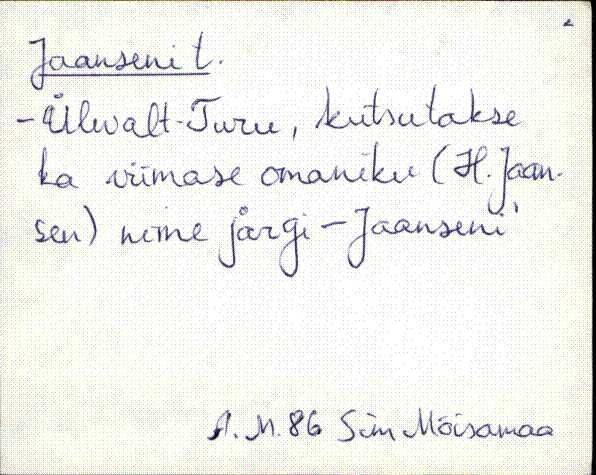 Jaanseni t.
- Ülevalt-Turu, kutsutakse
ka viimase omaniku (H. Jaan-
sen) nime järgi – Jaanseni
A. M. 86 Sim Mõisamaa